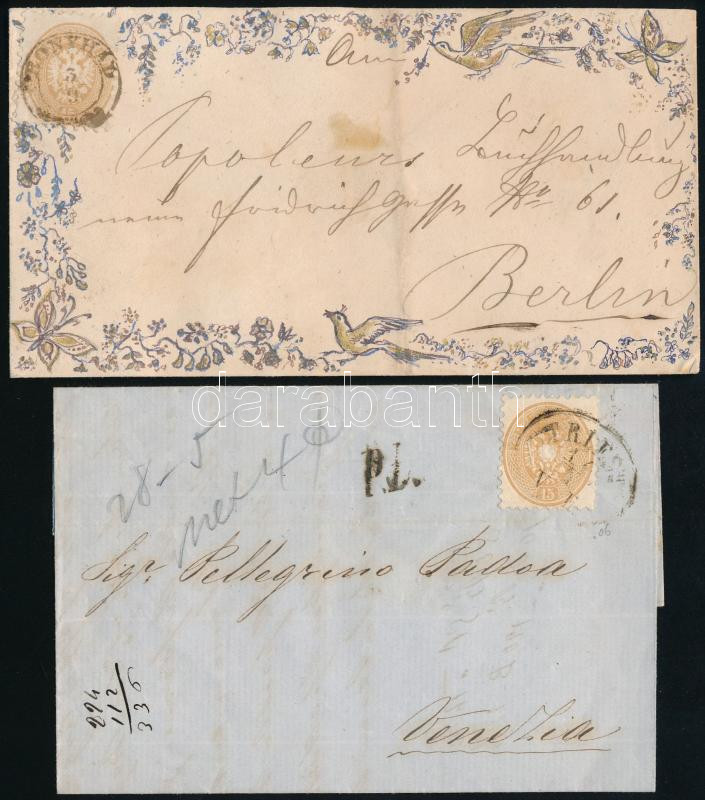 An
Buchhandlung
neue Fridrich Gasse No 61.
Berlin
darabanth
28-5
P.L.
TRIEST
15
Sigr. Pellegrino Padoa
224
112
336
Venezia